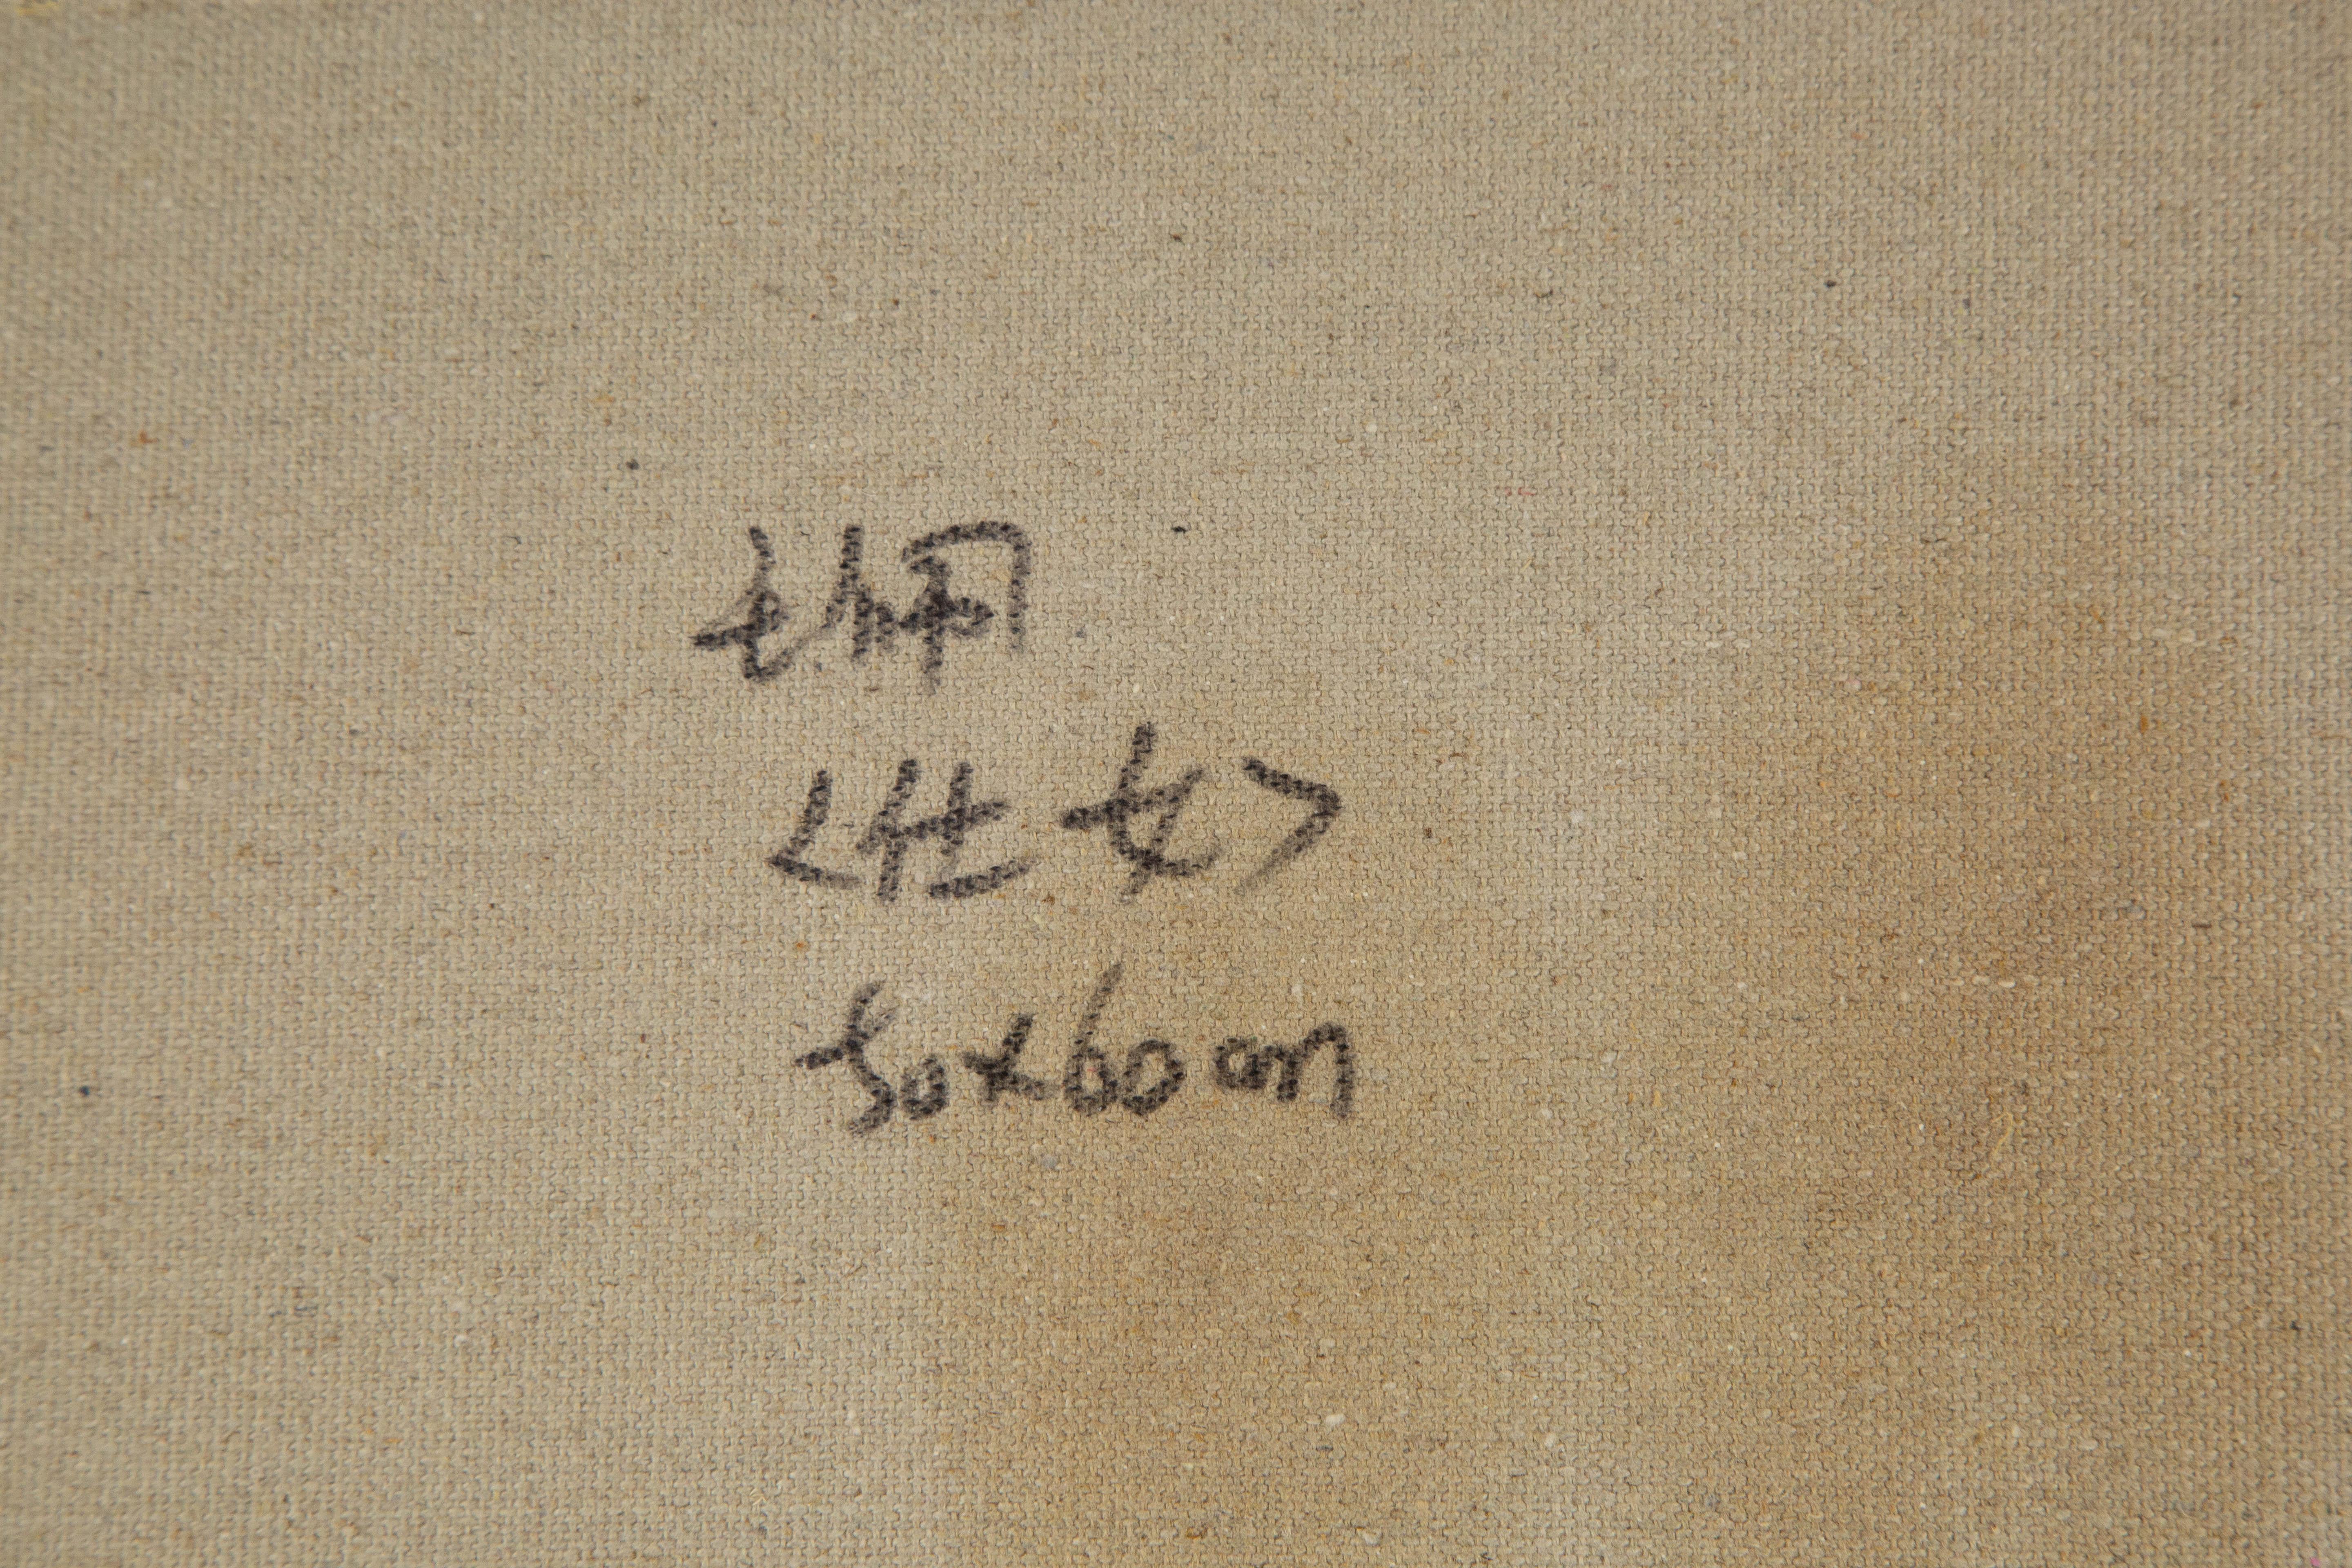 〈仕女〉
50x60cm